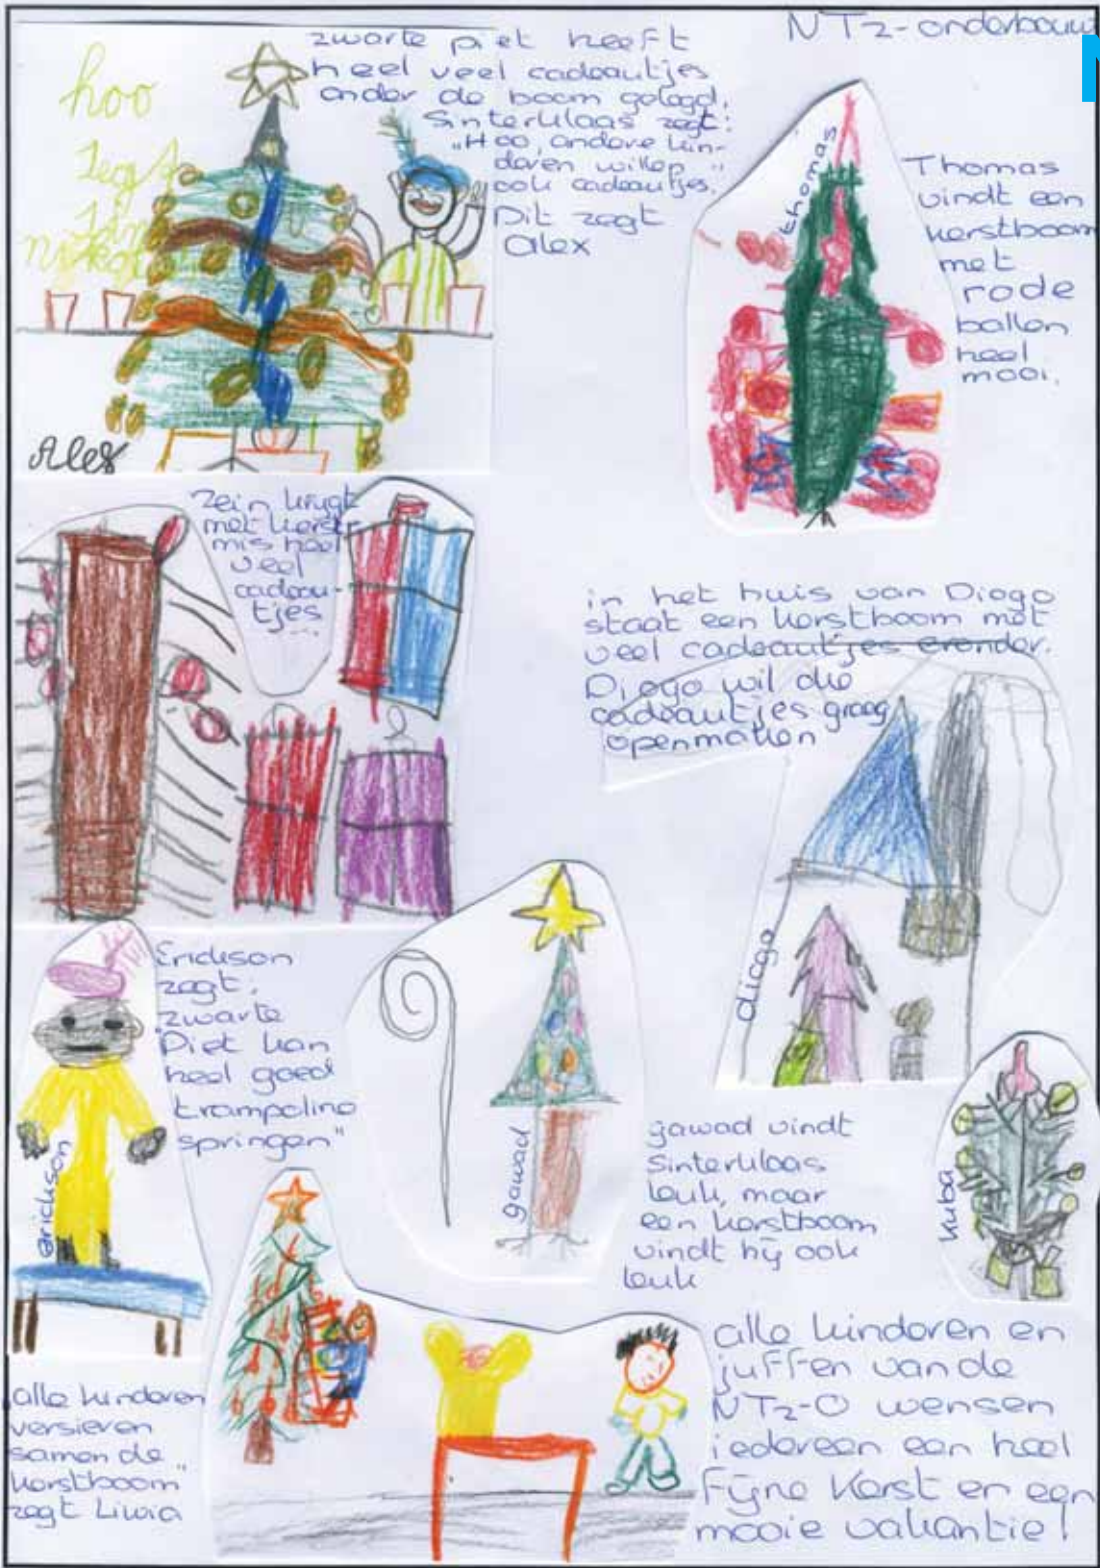 NT2-onderbouw
zwarte piet heeft
heel veel cadeautjes
onder de boom gelegd.
Sinterklaas zegt:
"Hoo, andere kin-
deren willen
ook cadeautjes."
Dit zegt
Alex
hoo
Alex
thomas
Thomas
vindt een
kerstboom
met
rode
ballen
heel
mooi.
Zein krijgt
met kerst-
mis heel
veel
cadeau-
tjes
...
in het huis van Diogo
staat een kerstboom met
veel cadeautjes eronder.
Diogo wil die
cadeautjes graag
openmaken
diogo
Erickson
zegt:
"zwarte
Piet kan
heel goed
trampoline
springen"
erickson
gawad
gawad vindt
Sinterklaas
leuk, maar
een kerstboom
vindt hij ook
leuk
kuba
alle kinderen
versieren
samen de
kerstboom"
zegt Liwia
alle kinderen en
juffen van de
NT2-O wensen
iedereen een heel
fijne Kerst en een
mooie vakantie!